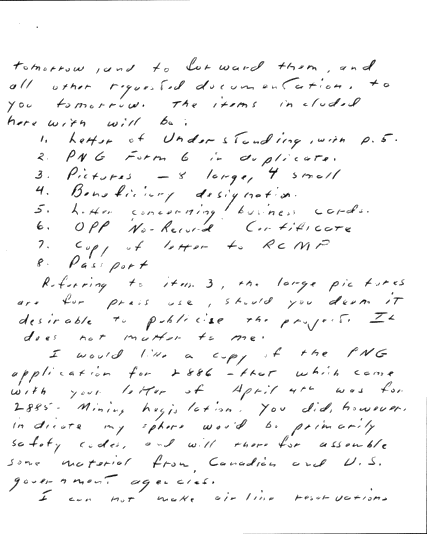 tomorrow, and to forward them, and
all other requested documentation, to
you tomorrow. The items included
herewith will be:
1. Letter of Understanding, with p.s.
2. PNG Form 6 in duplicate.
3. Pictures - 8 large, 4 small
4. Beneficiary designation.
5. Letter concerning business cards.
6. OPP No-Record Certificate
7. Copy of letter to RCMP
8. Passport
Referring to item 3, the large pictures
are for press use, should you deem it
desirable to publicise the project. It
does not matter to me.
I would like a copy of the PNG
application for 2886 - that which came
with your letter of April 4th was for
2885 - Mining Legislation. You did, however,
indicate my sphere would be primarily
safety codes, and will therefor assemble
some material from Canadian and U.S.
government agencies.
I can not make airline reservations